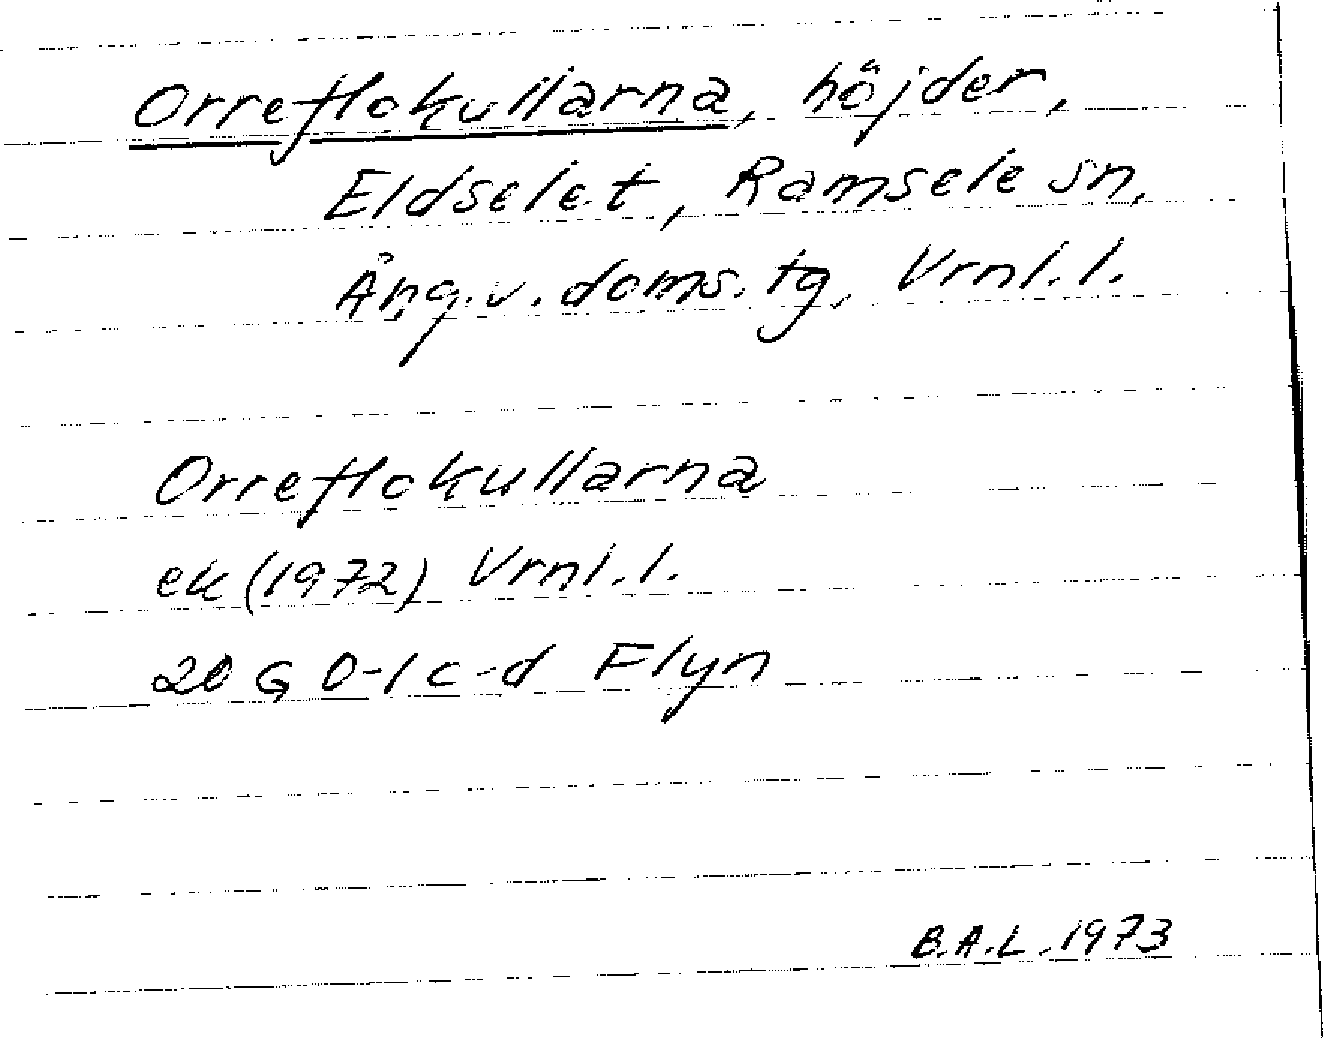 Orreflokullarna, höjder,
Eldselet, Ramsele sn,
Ång.v. doms.tg, Vrnl.l.
Orreflokullarna
ek (1972) Vrnl.l.
20 G 0-1 c-d Flyn
B.A.L. 1973